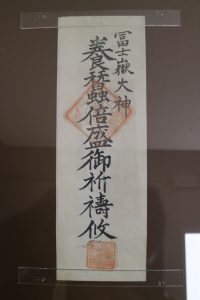 冨士嶽大神
養蚕倍盛御祈祷攸